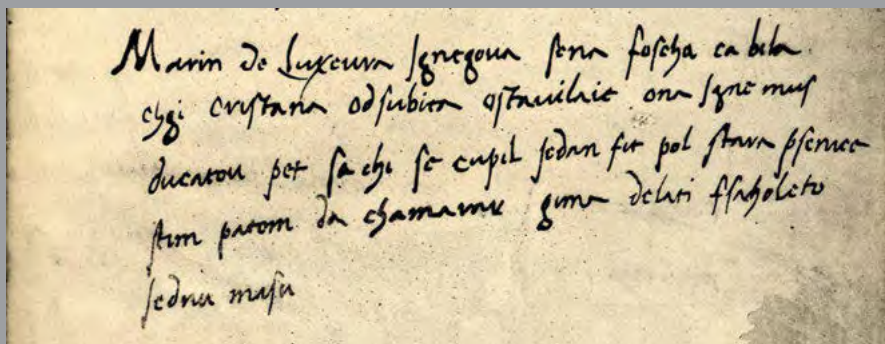 Marin de Luxeura Ignegoua sena foscha ca bila
chgi cristana odsubita ostauilaie ona Igne mus
ducatou pet sa chi se cupil sedan fit pol stara psenice
stim patom da chamarar gima delati fsacholeto
sednu masu